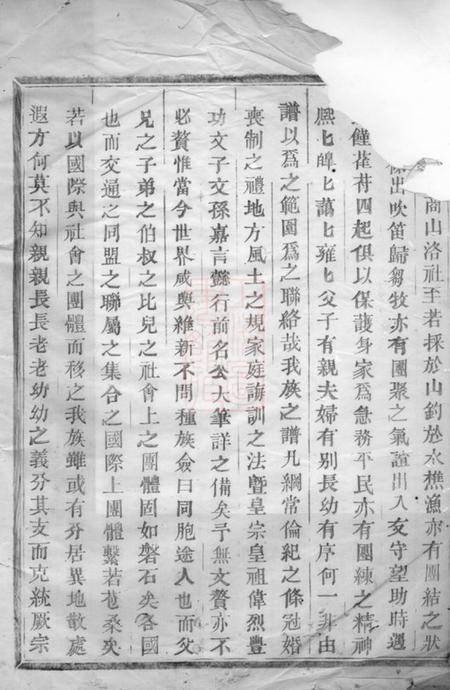 商山洛社至若採於山釣於水樵漁亦有團結之狀
出吹笛歸芻牧亦有團聚之氣誼出入友守望助時遇
饉萑苻四起俱以保護身家為急務平民亦有團練之精神
熙匕皡匕藹匕雍匕父子有親夫婦有別長幼有序何一非由
譜以為之範圍為之聯絡哉我族之譜凡綱常倫紀之條冠婚
喪制之禮地方風土之規家庭誨訓之法暨皇宗皇祖偉烈豐
功文子文孫嘉言懿行前名公大筆詳之備矣予無文贅亦不
必贅惟當今世界咸與維新不問種族僉曰同胞途人也而父
兄之子弟之伯叔之比兒之社會上之團體固如磐石矣各國
也而交通之同盟之聯屬之集合之國際上團體繫若苞桑矣
若以國際與社會之團體而移之我族雖或有分居異地散處
遐方何莫不知親親長長老老幼幼之義分其支而克統厥宗